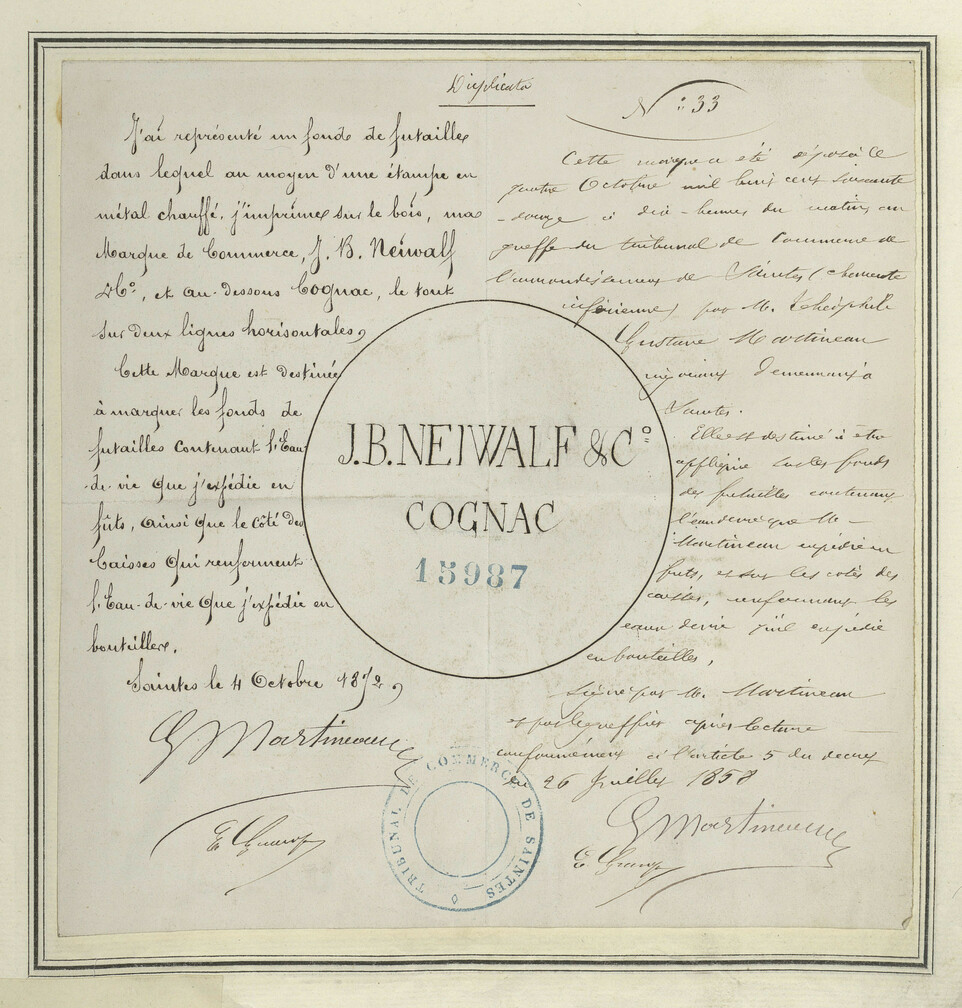 Duplicata
J'ai représenté un fonds de futailles
dans lequel au moyen d'une étampe en
métal chauffé, j'imprime sur le bois, ma
Marque de Commerce, J. B. Neiwalf
& Cº, et au-dessous Cognac, le tout
sur deux lignes horisontales,
Cette Marque est destinée
à marquer les fonds de
futailles contenant l'Eau
-de-vie que j'expédie en
fûts, ainsi que le côté des
Caisses qui renferment
l'Eau-de-vie que j'expédie en
bouteilles.
Saintes le 4 Octobre 1872,
G Martineau
J.B. NEIWALF & Cº
COGNAC
15987
Nº 33
Cette marque a été déposée le
quatre Octobre mil huit cent soixante
-douze à dix-heures du matin au
greffe du tribunal de Commerce de
l'arrondissement de Saintes (charente
inférieure) par M. Théophile
Gustave Martineau
négociant demeurant à
Saintes.
Elle est destiné à être
appliquée sur les fonds
des futailles contenant
l'eau de vie que M.-
Martineau expédie en
futs, et sur les cotés des
caisses, renfermant les
eaux de vie qu'il expédie
en bouteilles,
Signé par M. Martineau
et par le greffier après lecture
conformément à l'article 5 du decret
du 26 Juillet 1858
G Martineau
TRIBUNAL DE COMMERCE DE SAINTES